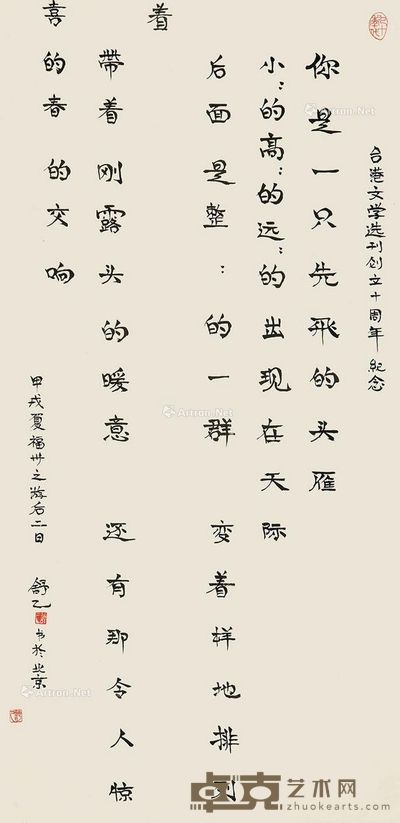 台港文学选刊创立十周年 纪念
你是一只先飞的头雁
小：的高：的远：的出现在天际
后面是整：的一群 变着样地排列
着
帶着刚露头的暖意 还有那令人惊
喜的春的交响
甲戌夏福州之游后二日 舒乙 书於北京
Artron.Net
卓克艺术网
zhuokearts.com